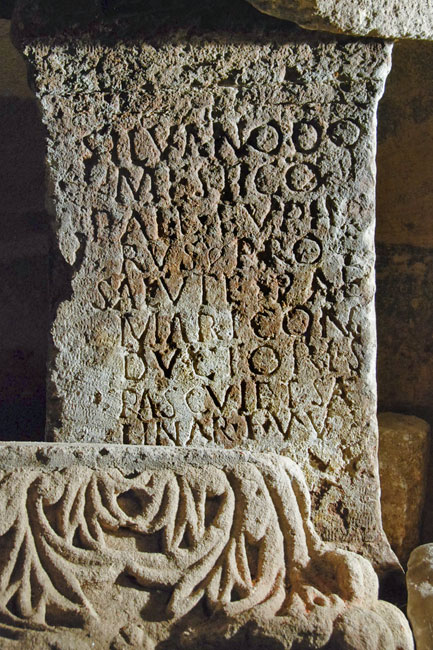 SILVANO DO
MESTICO
P AEL EVPH
RVS PRO
SALVTE P AE
MARI CON
DVCTORIS
PASCVI ET SA
LINAR